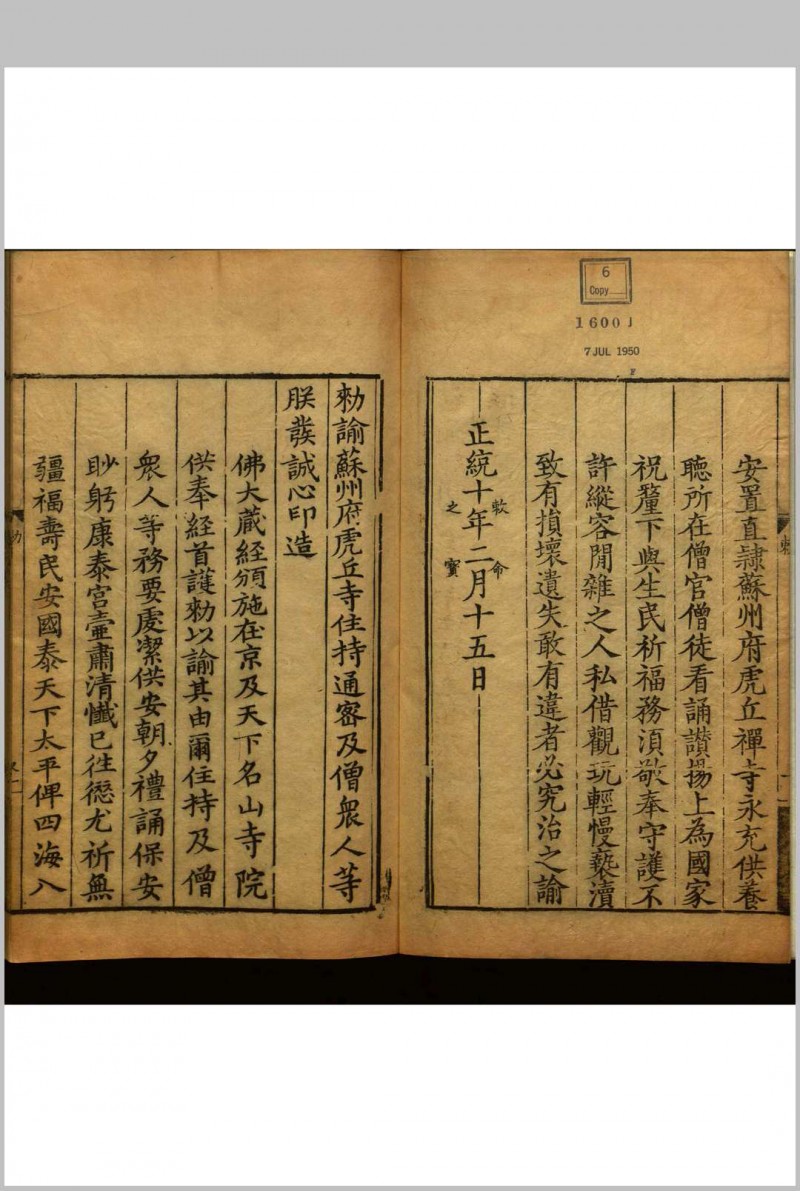 6
Copy
1600 J
7 JUL 1950
安置直隷蘇州府虎丘禪寺永充供養
聽所在僧官僧徒看誦讃揚上為國家
祝釐下與生民祈福務湏敬奉守護不
許縱容閒雜之人私借觀玩輕慢褻瀆
致有損壞遺失敢有違者必究治之諭
正統十年二月十五日
敕命
之寳
勑諭蘇州府虎丘寺住持通密及僧衆人等
朕發誠心印造
佛大藏經頒施在京及天下名山寺院
供奉経首護勑以諭其由爾住持及僧
衆人等務要虔潔供安朝夕禮誦保安
眇躬康泰宫壼肅清懺已徃愆尤祈無
疆福壽民安國泰天下太平俾四海八